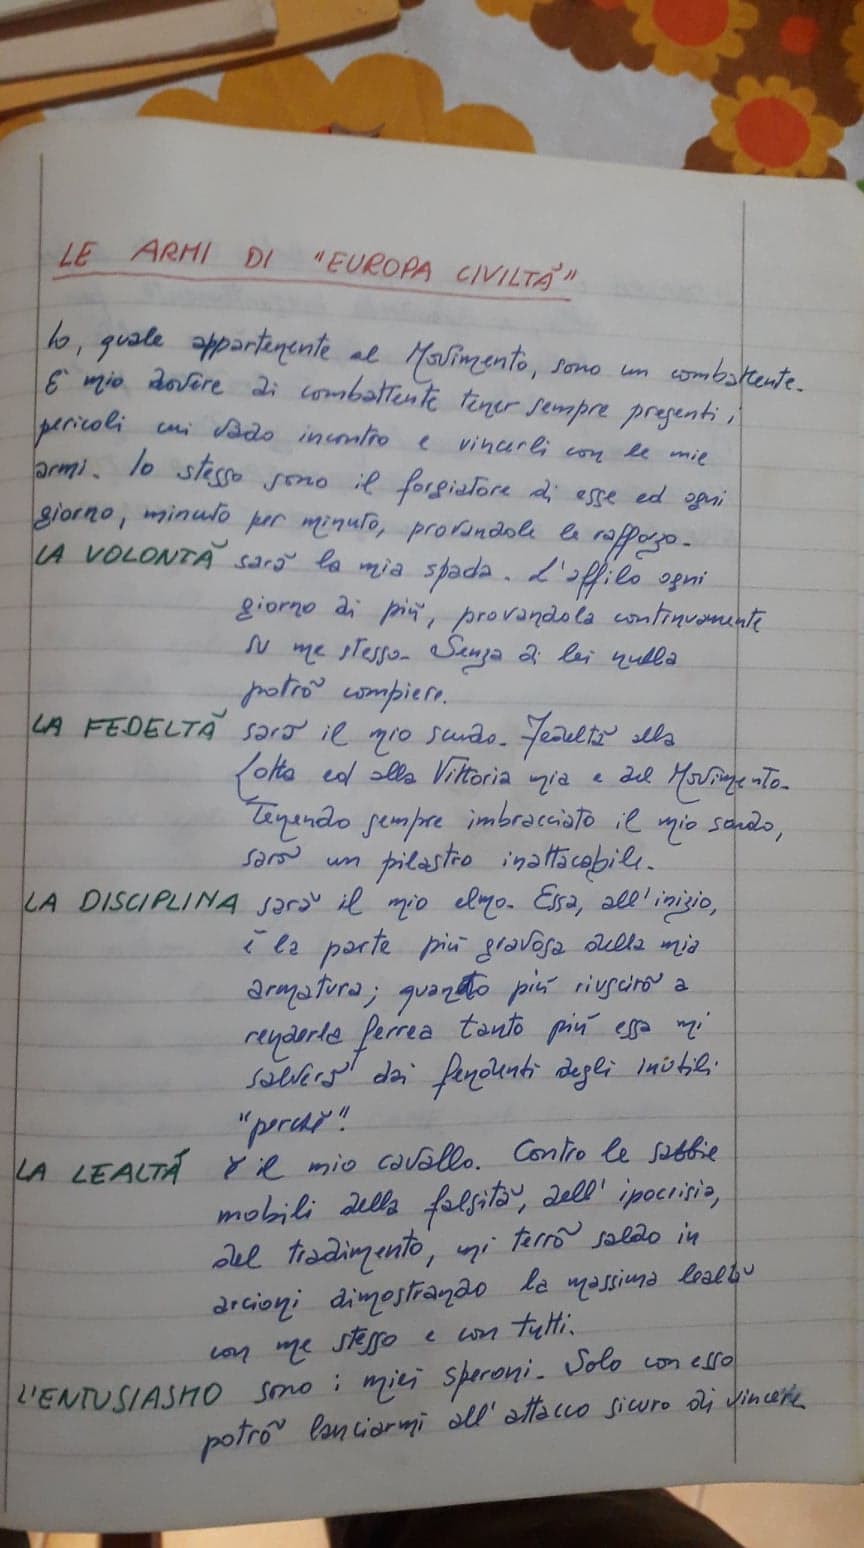 LE ARMI DI "EUROPA CIVILTÀ"
Io, quale appartenente al Movimento, sono un combattente.
È mio dovere di combattente tener sempre presenti i
pericoli cui vado incontro e vincerli con le mie
armi. Io stesso sono il forgiatore di esse ed ogni
giorno, minuto per minuto, provandole le rafforzo.
LA VOLONTÀ sarà la mia spada. L'affilo ogni
giorno di più, provandola continuamente
su me stesso. Senza di lei nulla
potrò compiere.
LA FEDELTÀ sarà il mio scudo. Fedeltà alla
Lotta ed alla Vittoria mia e del Movimento.
Tenendo sempre imbracciato il mio scudo,
sarò un pilastro inattacabile.
LA DISCIPLINA sarà il mio elmo. Essa, all'inizio,
è la parte più gravosa della mia
armatura; quanto più riuscirò a
renderla ferrea tanto più essa mi
salverà dai fendenti degli inutili
"perché".
LA LEALTÀ è il mio cavallo. Contro le sabbie
mobili della falsità, dell'ipocrisia,
del tradimento, mi terrò saldo in
arcioni dimostrando la massima lealtà
con me stesso e con tutti.
L'ENTUSIASMO sono i miei speroni. Solo con esso
potrò lanciarmi all'attacco sicuro di vincere